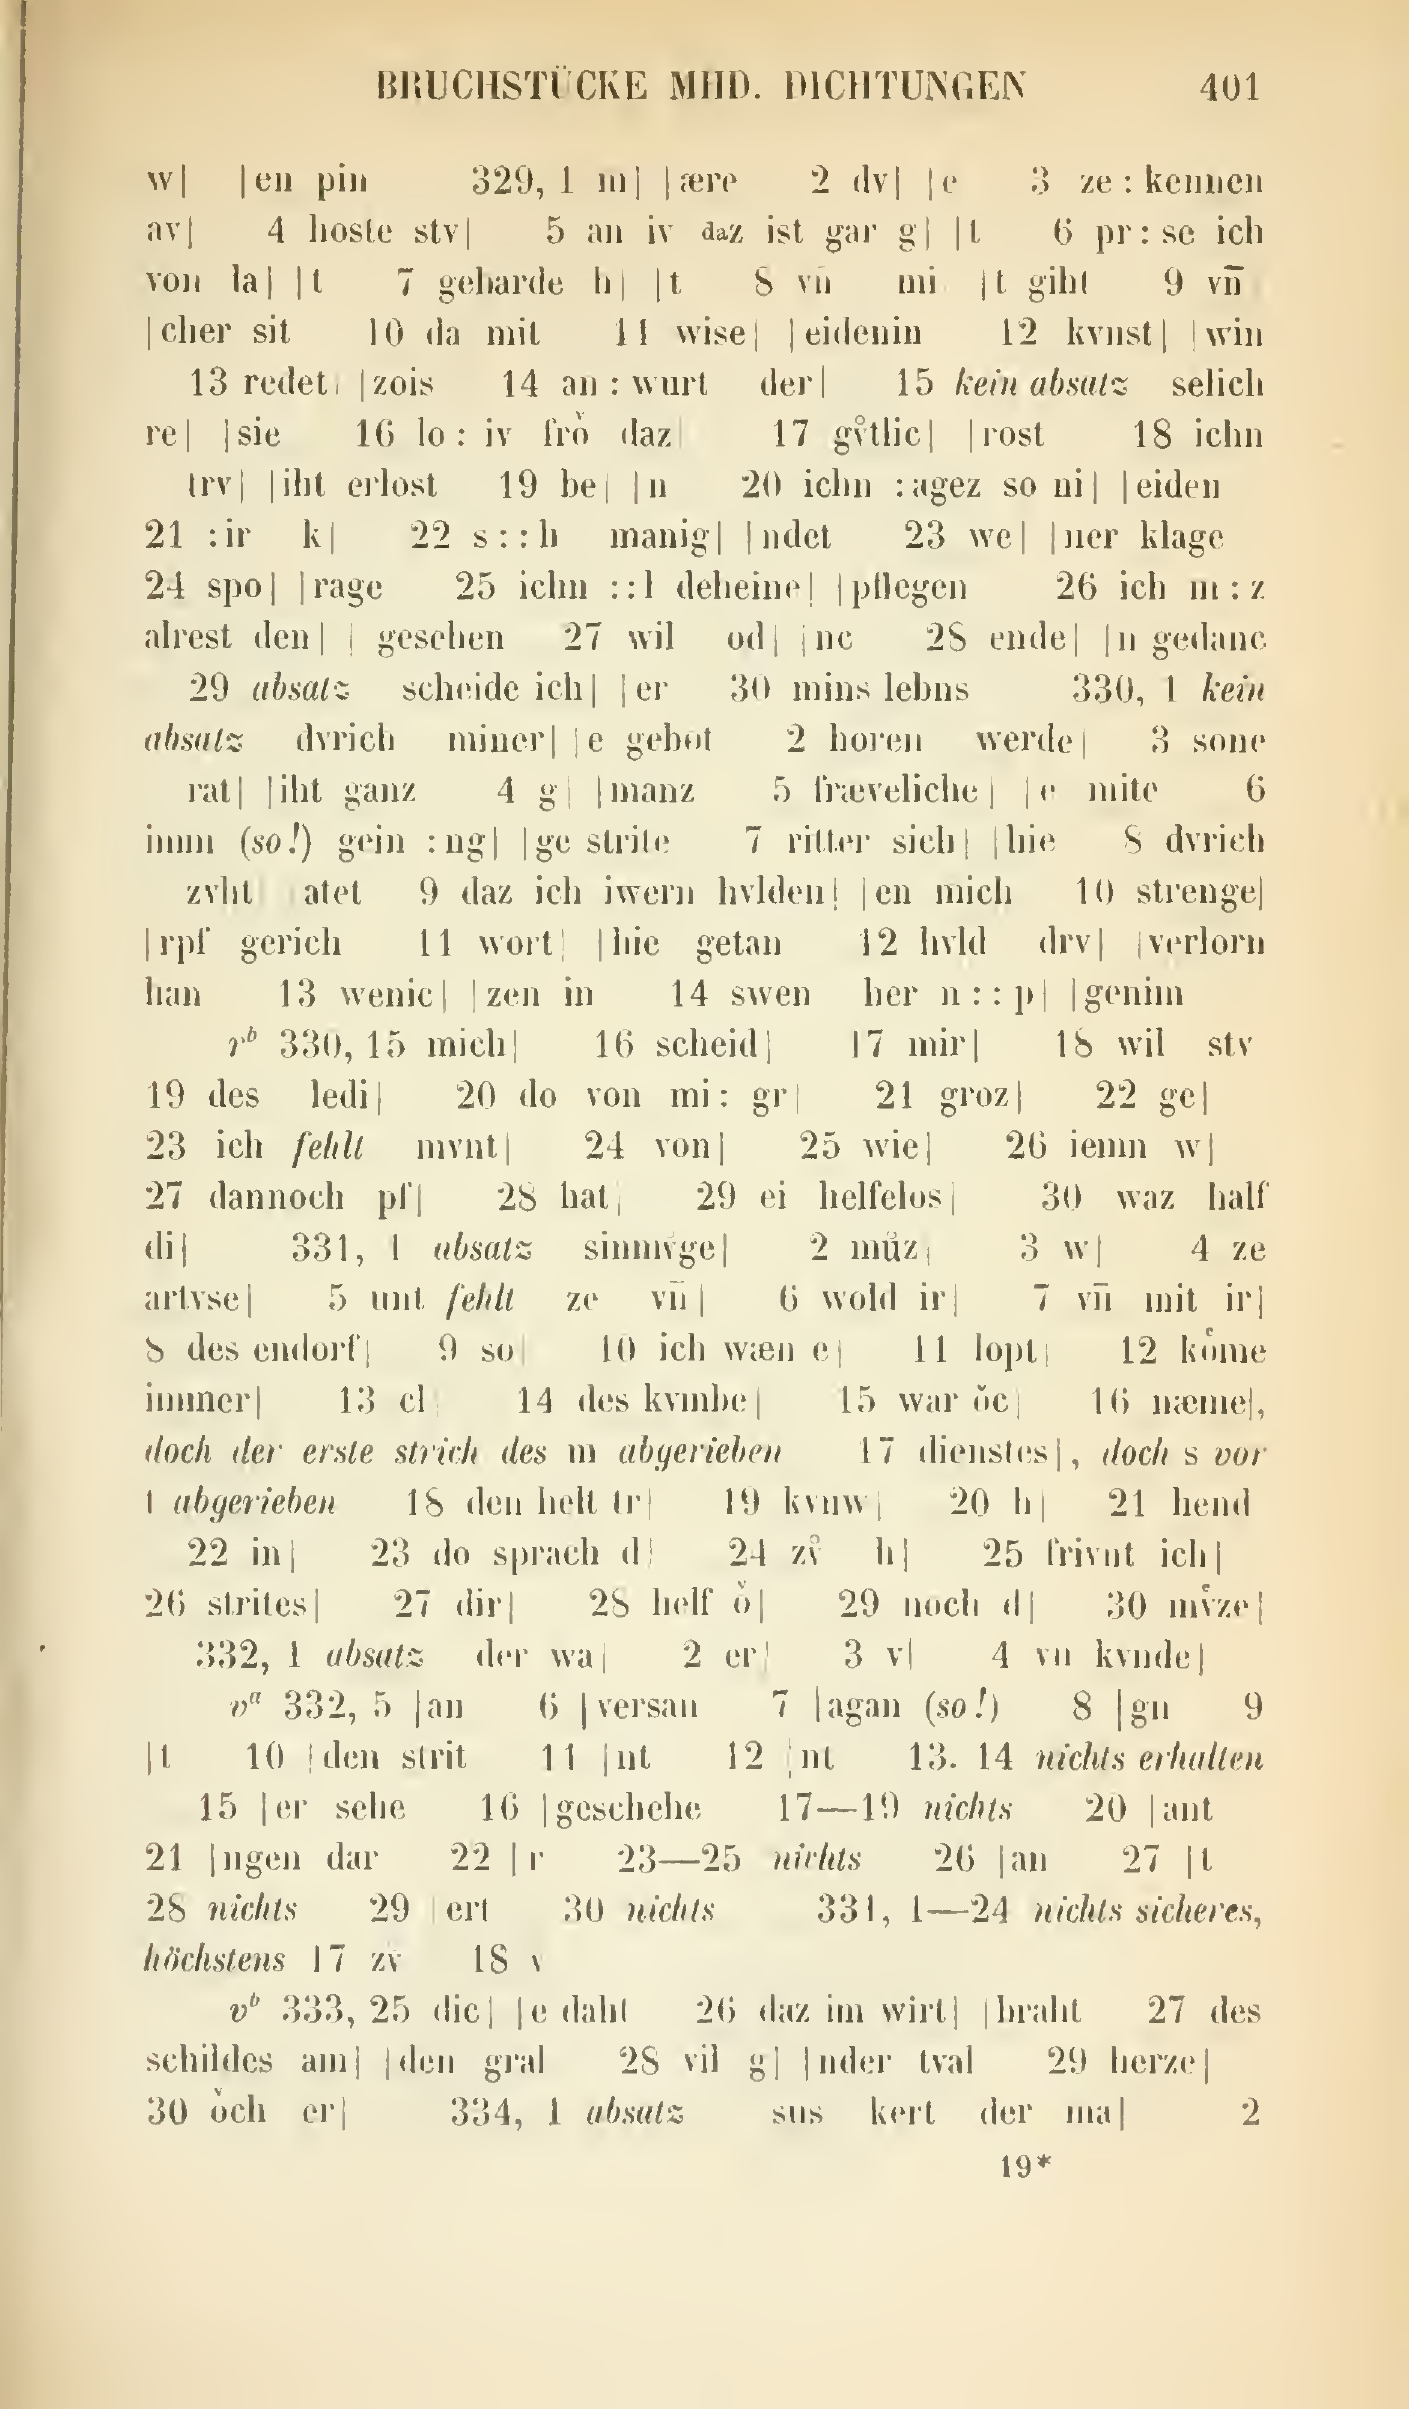 BRUCHSTÜCKE MHD. DICHTUNGEN 401
w| |en pin 329, 1 m| |ære 2 dv| |e 3 ze : kennen
av| 4 hoste stv| 5 an iv daz ist gar g| |t 6 pr : se ich
von la| |t 7 gebarde h| |t 8 vn̄ mi |t giht 9 vn̄
|cher sit 10 da mit 11 wise| |eidenin 12 kvnst| |win
13 redet| |zois 14 an : wurt der| 15 kein absatz selich
re| |sie 16 lo : iv frǒ daz| 17 gv̊tlic| |rost 18 ichn
trv| |iht erlost 19 be| |n 20 ichn :agez so ni| |eiden
21 :ir k| 22 s : : h manig| |ndet 23 we| |ner klage
24 spo| |rage 25 ichn : : l deheine| |pflegen 26 ich m : z
alrest den| | gesehen 27 wil od| |ne 28 ende| |n gedanc
29 absatz scheide ich| |er 30 mins lebns 330, 1 kein
absatz dvrich miner| |e gebot 2 horen werde| 3 sone
rat| |iht ganz 4 g| |manz 5 fræveliche| |e mite 6
imm (so!) gein : ng| |ge strite 7 ritter sich| |hie 8 dvrich
zvht| |atet 9 daz ich iwern hvlden| |en mich 10 strenge|
|rpf gerich 11 wort| |hie getan 12 hvld drv| |verlorn
han 13 wenic| |zen in 14 swen her n : : p| |genim
rᵇ 330, 15 mich| 16 scheid| 17 mir| 18 wil stv
19 des ledi| 20 do von mi : gr| 21 groz| 22 ge|
23 ich fehlt mvnt| 24 von| 25 wie| 26 iemn w|
27 dannoch pf| 28 hat| 29 ei helfelos| 30 waz half
di| 331, 1 absatz sinmvͦge| 2 müz| 3 w| 4 ze
artvse| 5 unt fehlt ze vn̄| 6 wold ir| 7 vn̄ mit ir|
8 des endorf| 9 so| 10 ich wæn e| 11 lopt| 12 koͤme
immer| 13 el| 14 des kvmbe| 15 war ǒc| 16 næme|,
doch der erste strich des m abgerieben 17 dienstes|, doch s vor
t abgerieben 18 den helt tr| 19 kvnw| 20 h| 21 hend
22 in| 23 do sprach d| 24 zv̊ h| 25 frivnt ich|
26 strites| 27 dir| 28 helf ǒ| 29 noch d| 30 mvͤze|
332, 1 absatz der wa| 2 er| 3 v| 4 vn kvnde|
vᵃ 332, 5 |an 6 |versan 7 |agan (so!) 8 |gn 9
|t 10 |den strit 11 |nt 12 |nt 13. 14 nichts erhalten
15 |er sehe 16 |geschehe 17—19 nichts 20 |ant
21 |ngen dar 22 |r 23—25 nichts 26 |an 27 |t
28 nichts 29 |ert 30 nichts 331, 1—24 nichts sicheres,
höchstens 17 zv 18 v
vᵇ 333, 25 die| |e daht 26 daz im wirt| |braht 27 des
schildes am| |den gral 28 vil g| |nder tval 29 herze|
30 ǒch er| 334, 1 absatz sus kert der ma| 2
19*